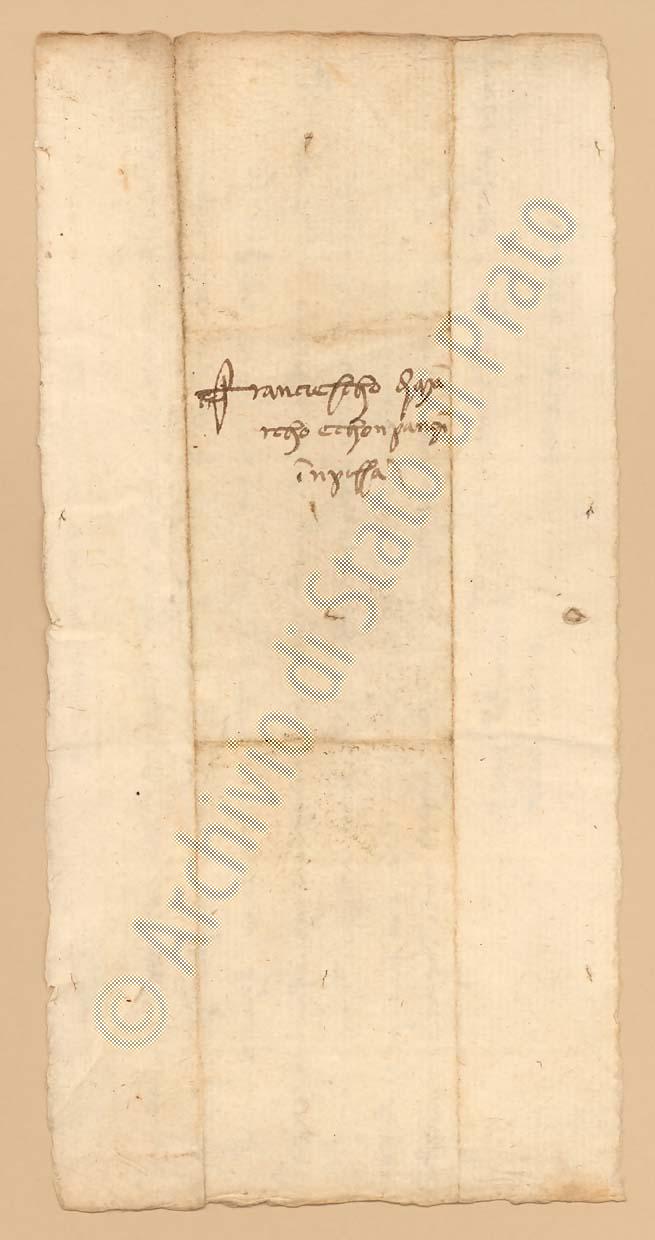 Franciescho di Ma
rcho e chonpangni
in pissa
© Archivio di Stato di Prato